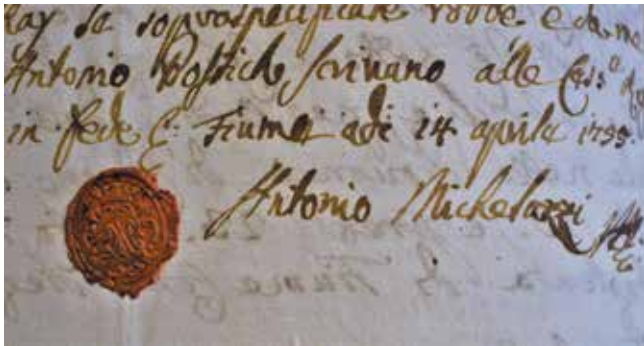 Ray la soprospecificate robbe e da me
Antonio Bostich scrivano alle Cass.a
in fede &. Fiume adi 14 aprile 1755.
Antonio Michelazzi